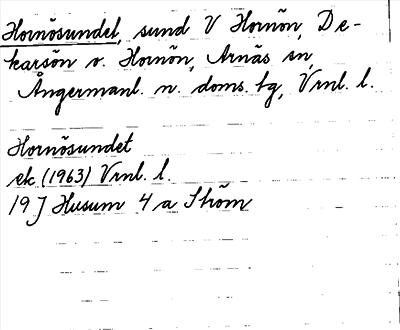 Hornösundet, sund V Hornön, De-
karsön o. Hornön, Arnäs sn,
Ångermanl. n. doms. tg, Vrnl. l.
Hornösundet
ek (1963) Vrnl. l.
19 J Husum 4 a Ström